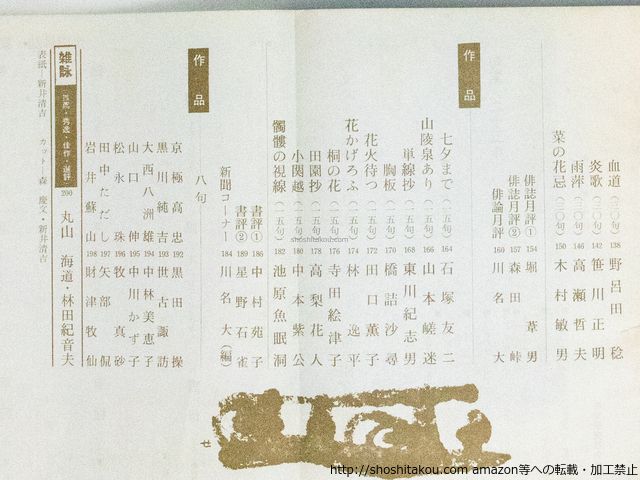 血道(三〇句) 138 矢沼田稔
炎歌(三〇句) 142 笹川正明
雨萍(三〇句) 146 高瀬哲夫
菜の花忌(三〇句) 150 木村敏男
俳誌月評① 154 堀葦男
俳誌月評② 157 森田峠
俳論月評 160 川名大
作品
七夕まで(一五句) 164 石塚友二
山陵泉あり(一五句) 166 山本嵯迷
単線抄(一五句) 168 東川紀志男
胸板(一五句) 170 橋詰沙尋
花火待つ(一五句) 172 田口薫子
花かげろふ(一五句) 174 林逸平
桐の花(一五句) 176 寺田絵津子
田園抄(一五句) 178 高梨花人
小関越(一五句) 180 中本紫公
髑髏の視線(一五句) 182 池原魚眠洞
書評① 186 中村苑子
書評② 189 星野石雀
新聞コーナー 184 川名大(編)
作品
八句
京極高忠 192 黒田操
黒川純吉 193 世古諏訪
大西八洲雄 194 中林美恵子
山口伸 195 中川かず子
松永珠 196 牧真砂
田中ただし 197 矢部侃
岩井蘇山 198 財津牧仙
雑詠 推薦・秀逸・佳作・選評 200 丸山海道・林田紀音夫
表紙・新井清吉 カット・森慶文・新井清吉
shoshitakou.com
http://shoshitakou.com amazon等への転載・加工禁止